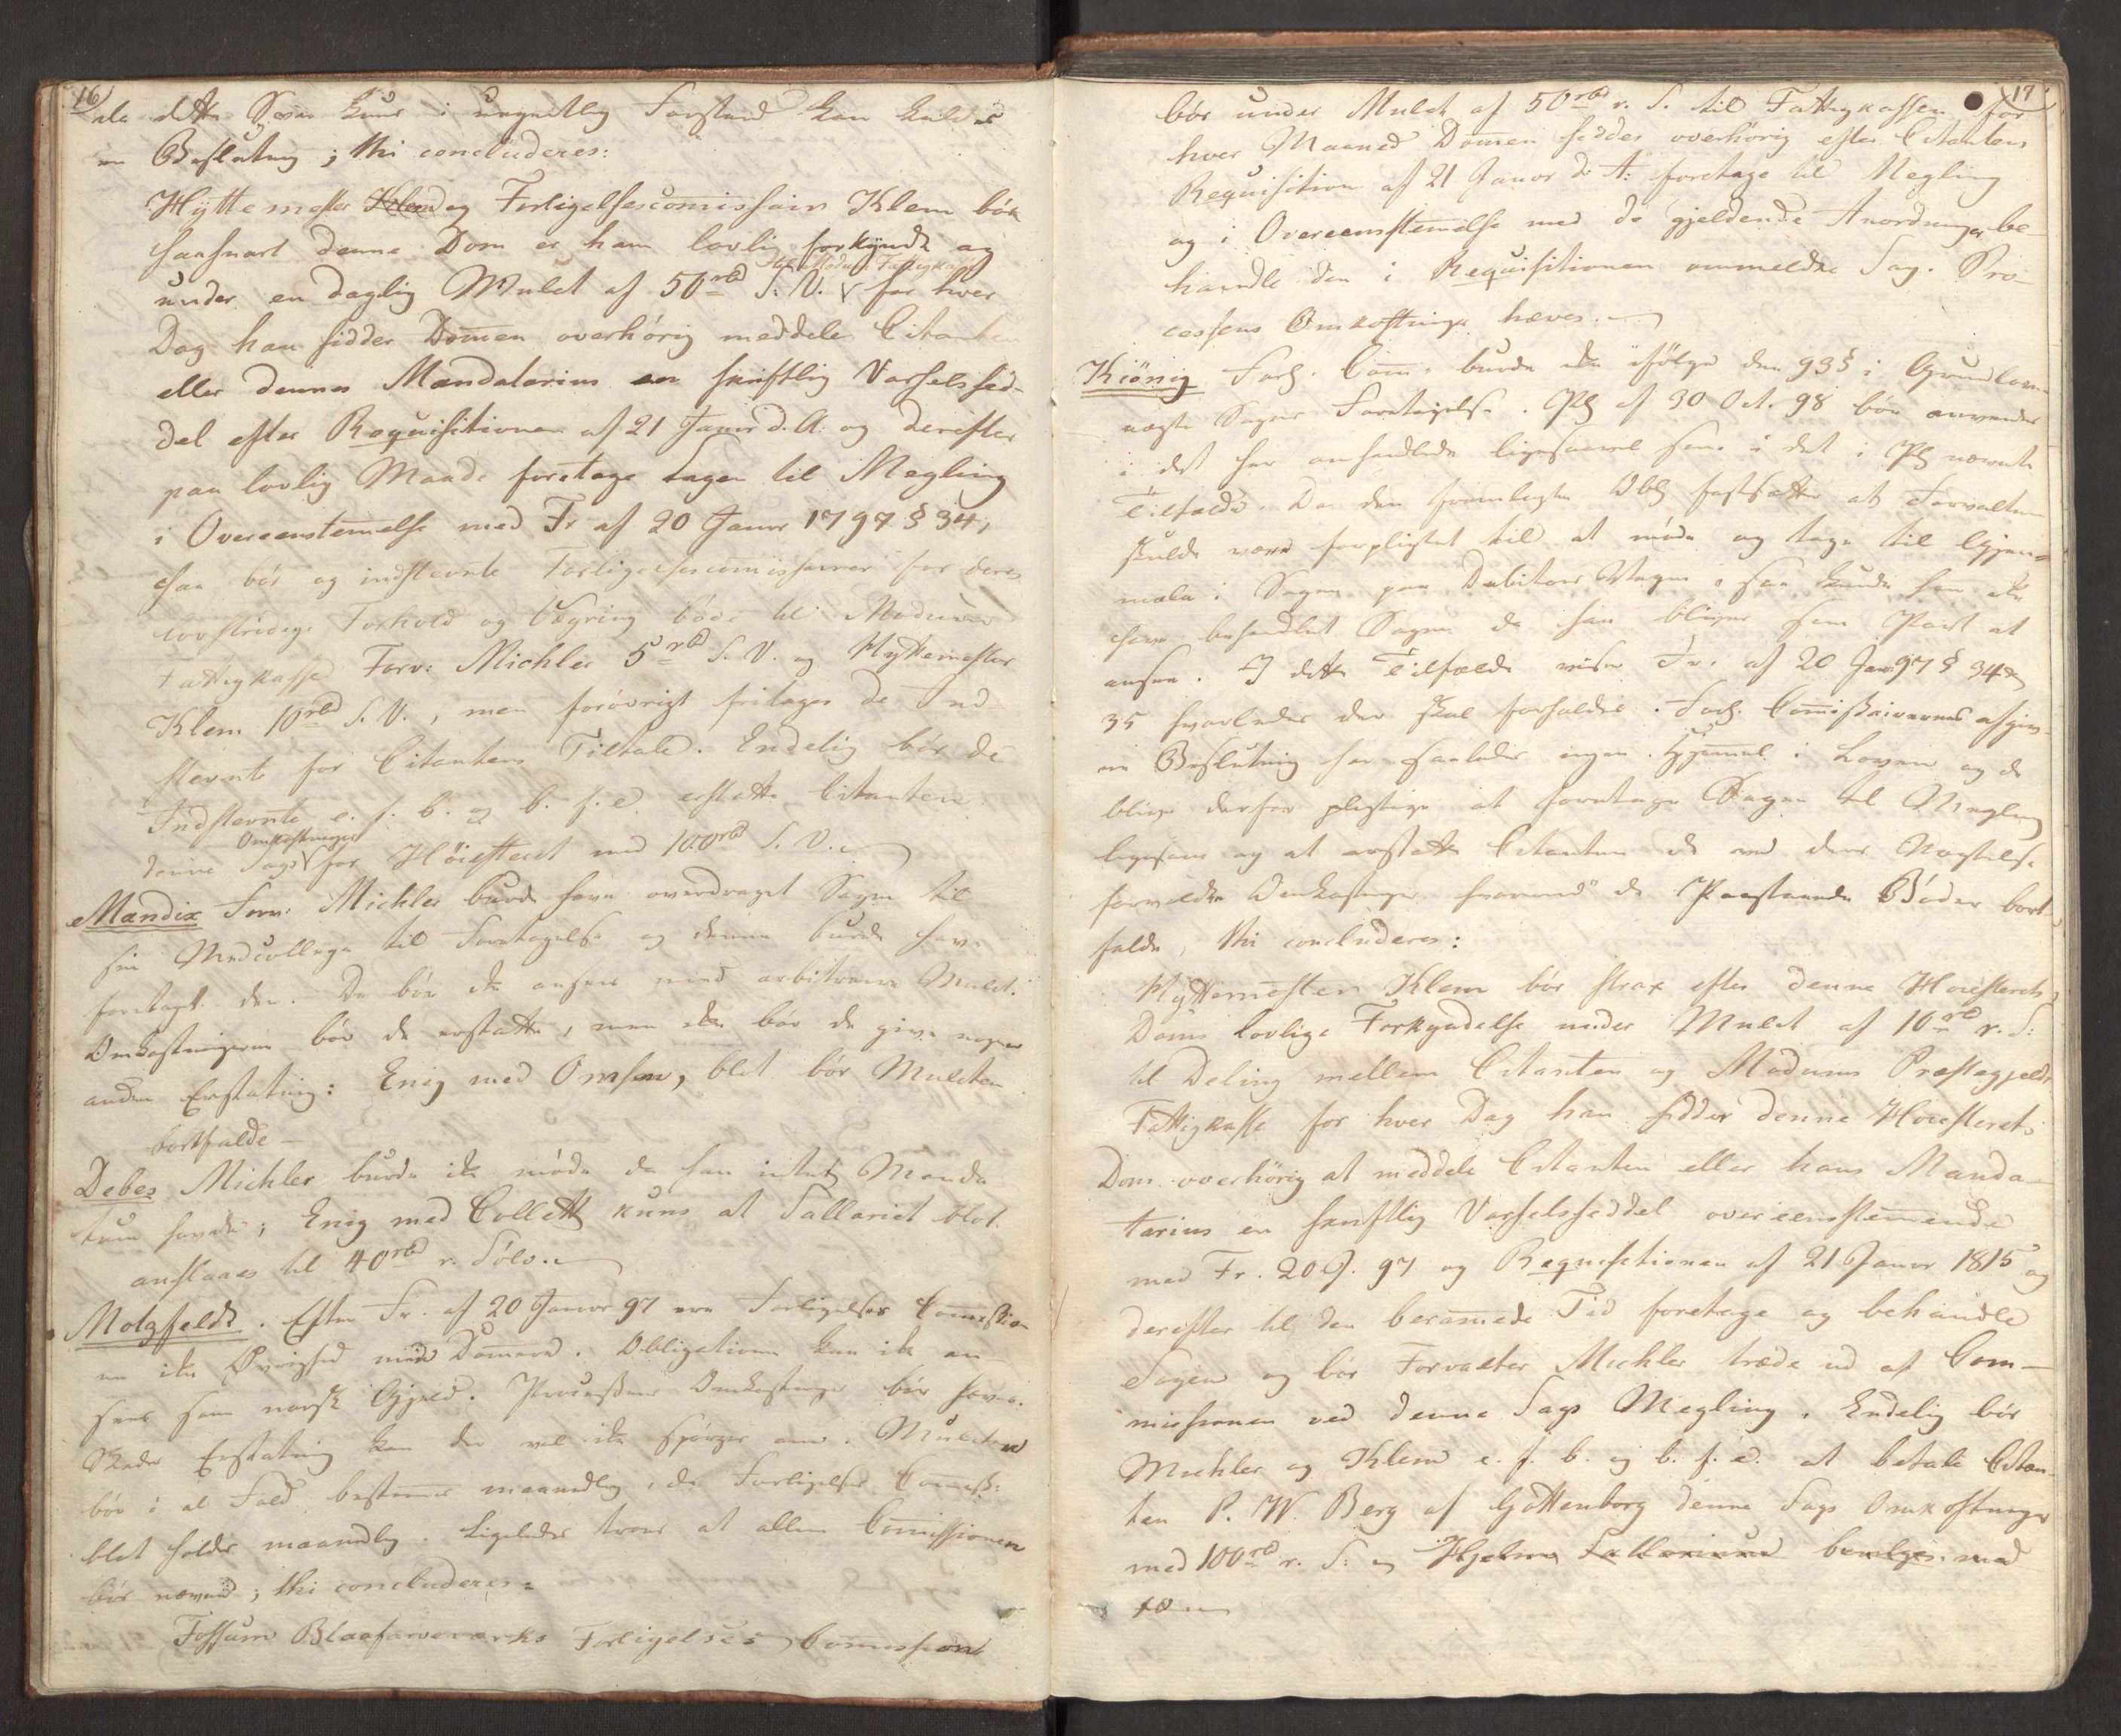 16
da dette Svar kuns i uegentlig Forstand kan kaldes
en Beslutning; thi concluderes:
Hyttemester Klem og Forligelsescomissair Klem bör
saasnart denne Dom er ham lovlig forkyndt og
under en daglig Mulct af 50 rbd S. V. til Modums Fattigkasse for hver
Dag han sidder Dommen overhörig meddele Citanten
eller dennes Mandatarius en skriftlig Varselssed-
del efter Requisitionen af 21 Januar d. A. og derefter
paa lovlig Maade foretage Sagen til Megling
i Overeenstemelse med Fr af 20 Januar 1797 § 34,
saa bör og indstevnte Forligelsescomissairer for deres
lovstridige Forhold og Vægring böde til Modums
Fattigkasse Forv: Michler 5 rbd S. V. og Hyttemester
Klem 10 rbd S. V., men forövrigt fritages de Ind-
stevnte for Citantens Tiltale. Endelig bör de
Indstevnte e. f. b. og b. f. e. erstatte Citanten
denne Sags Omkostninger for Höiesteret med 100 rbd S. V.
Mandix Forv: Michler burde have overdraget Sagen til
sin Medcollega til Foretagelse og denne burde have
foretaget den. De bör ik ansees med arbitrair Mulct.
Omkostningerne bör de erstatte, men ikke bör de give nogen
anden Erstatning: Enig med Omsen, blot bör Mulcten
bortfalde
Debes Michler burde ik möde da han intet Manda-
tum havde; Enig med Collett kuns at Sallariet blot
anslaaes til 40 rbd r. Sölv.
Motzfeldt. Efter Fr. af 20 Januar 97 ere Forligelses Comission
en ikke Övrighed men Dommere. Obligationen kan ik an-
sees som norsk Gjæld. Processens Omkostninger bör hæves.
Skades Erstatning kan der vel ik spörges om. Mulcten
bör i al Fald bestemmes maanedlig, da Forligelses Comiss:
blot holdes maanedlig. Ligeledes troer at allene Comissionen
bör nævnes; thi concluderes:
Fossum Blaafarveværks Forligelses Comission
17
bör under Mulct af 50 rbd r. S. til Fattigkassen for
hver Maaned Dommen sidder overhörig efter Citantens
Requisition af 21 Januar d: A: foretage til Megling
og i Overeenstemmelse med de gjeldende Anordninger be-
handle den i Requisitionen ommeldte Sag. Pro-
cessens Omkostninger hæves.
Kiönig Forl. Com. burde ik ifölge den 93 § i Grundloven
nægte Sagens Foretagelse. Pl af 30 Oct. 98 bör anvendes
i det her omhandlede ligesaavel som i det i Pl nævnte
Tilfælde. Da den fremlagte Obl fastsætter at Forvalteren
skulde være forpligtet til at möde og tage til Gjen-
mæle i Sagen paa Debitors Vegne, saa kunde han ik
have behandlet Sagen da han bliver som Part at
ansee. I dette Tilfælde viser Fr. af 20 Jan 97 § 34 og
35 hvorledes der skal forholdes. Forl. Comissairernes afgiv-
ne Beslutning har saaledes ingen Hjemmel i Loven og de
blive derfor pligtige at foretage Sagen til Megling
ligesom og at erstatte Citanten de ved deres Nægtelse
forvoldte Omkostninger hvorimod de Paastaaede Böder bort-
falde, thi concluderes:
Hyttemester Klem bör strax efter denne Höiesterets
Doms lovlige Forkyndelse under Mulct af 10 rbd r. S:
til Deling mellem Citanten og Modums Præstegjelds
Fattigkasse for hver Dag han sidder denne Höiesterets
Dom overhörig at meddele Citanten eller hans Manda-
tarius en skriftlig Varselsseddel overeenstemmende
med Fr. 20 J. 97 og Requisitionen af 21 Januar 1815 og
derefter til den berammede Tid foretage og behandle
Sagen og bör Forvalter Michler træde ud af Com-
missionen ved denne Sags Megling. Endelig bör
Michler og Klem e. f. b. og b. f. e. at betale Citan-
ten P. W. Berg af Gottenborg denne Sags Omkostninger
med 100 rbd r. S: og Hjelms Sallarium bevilges med